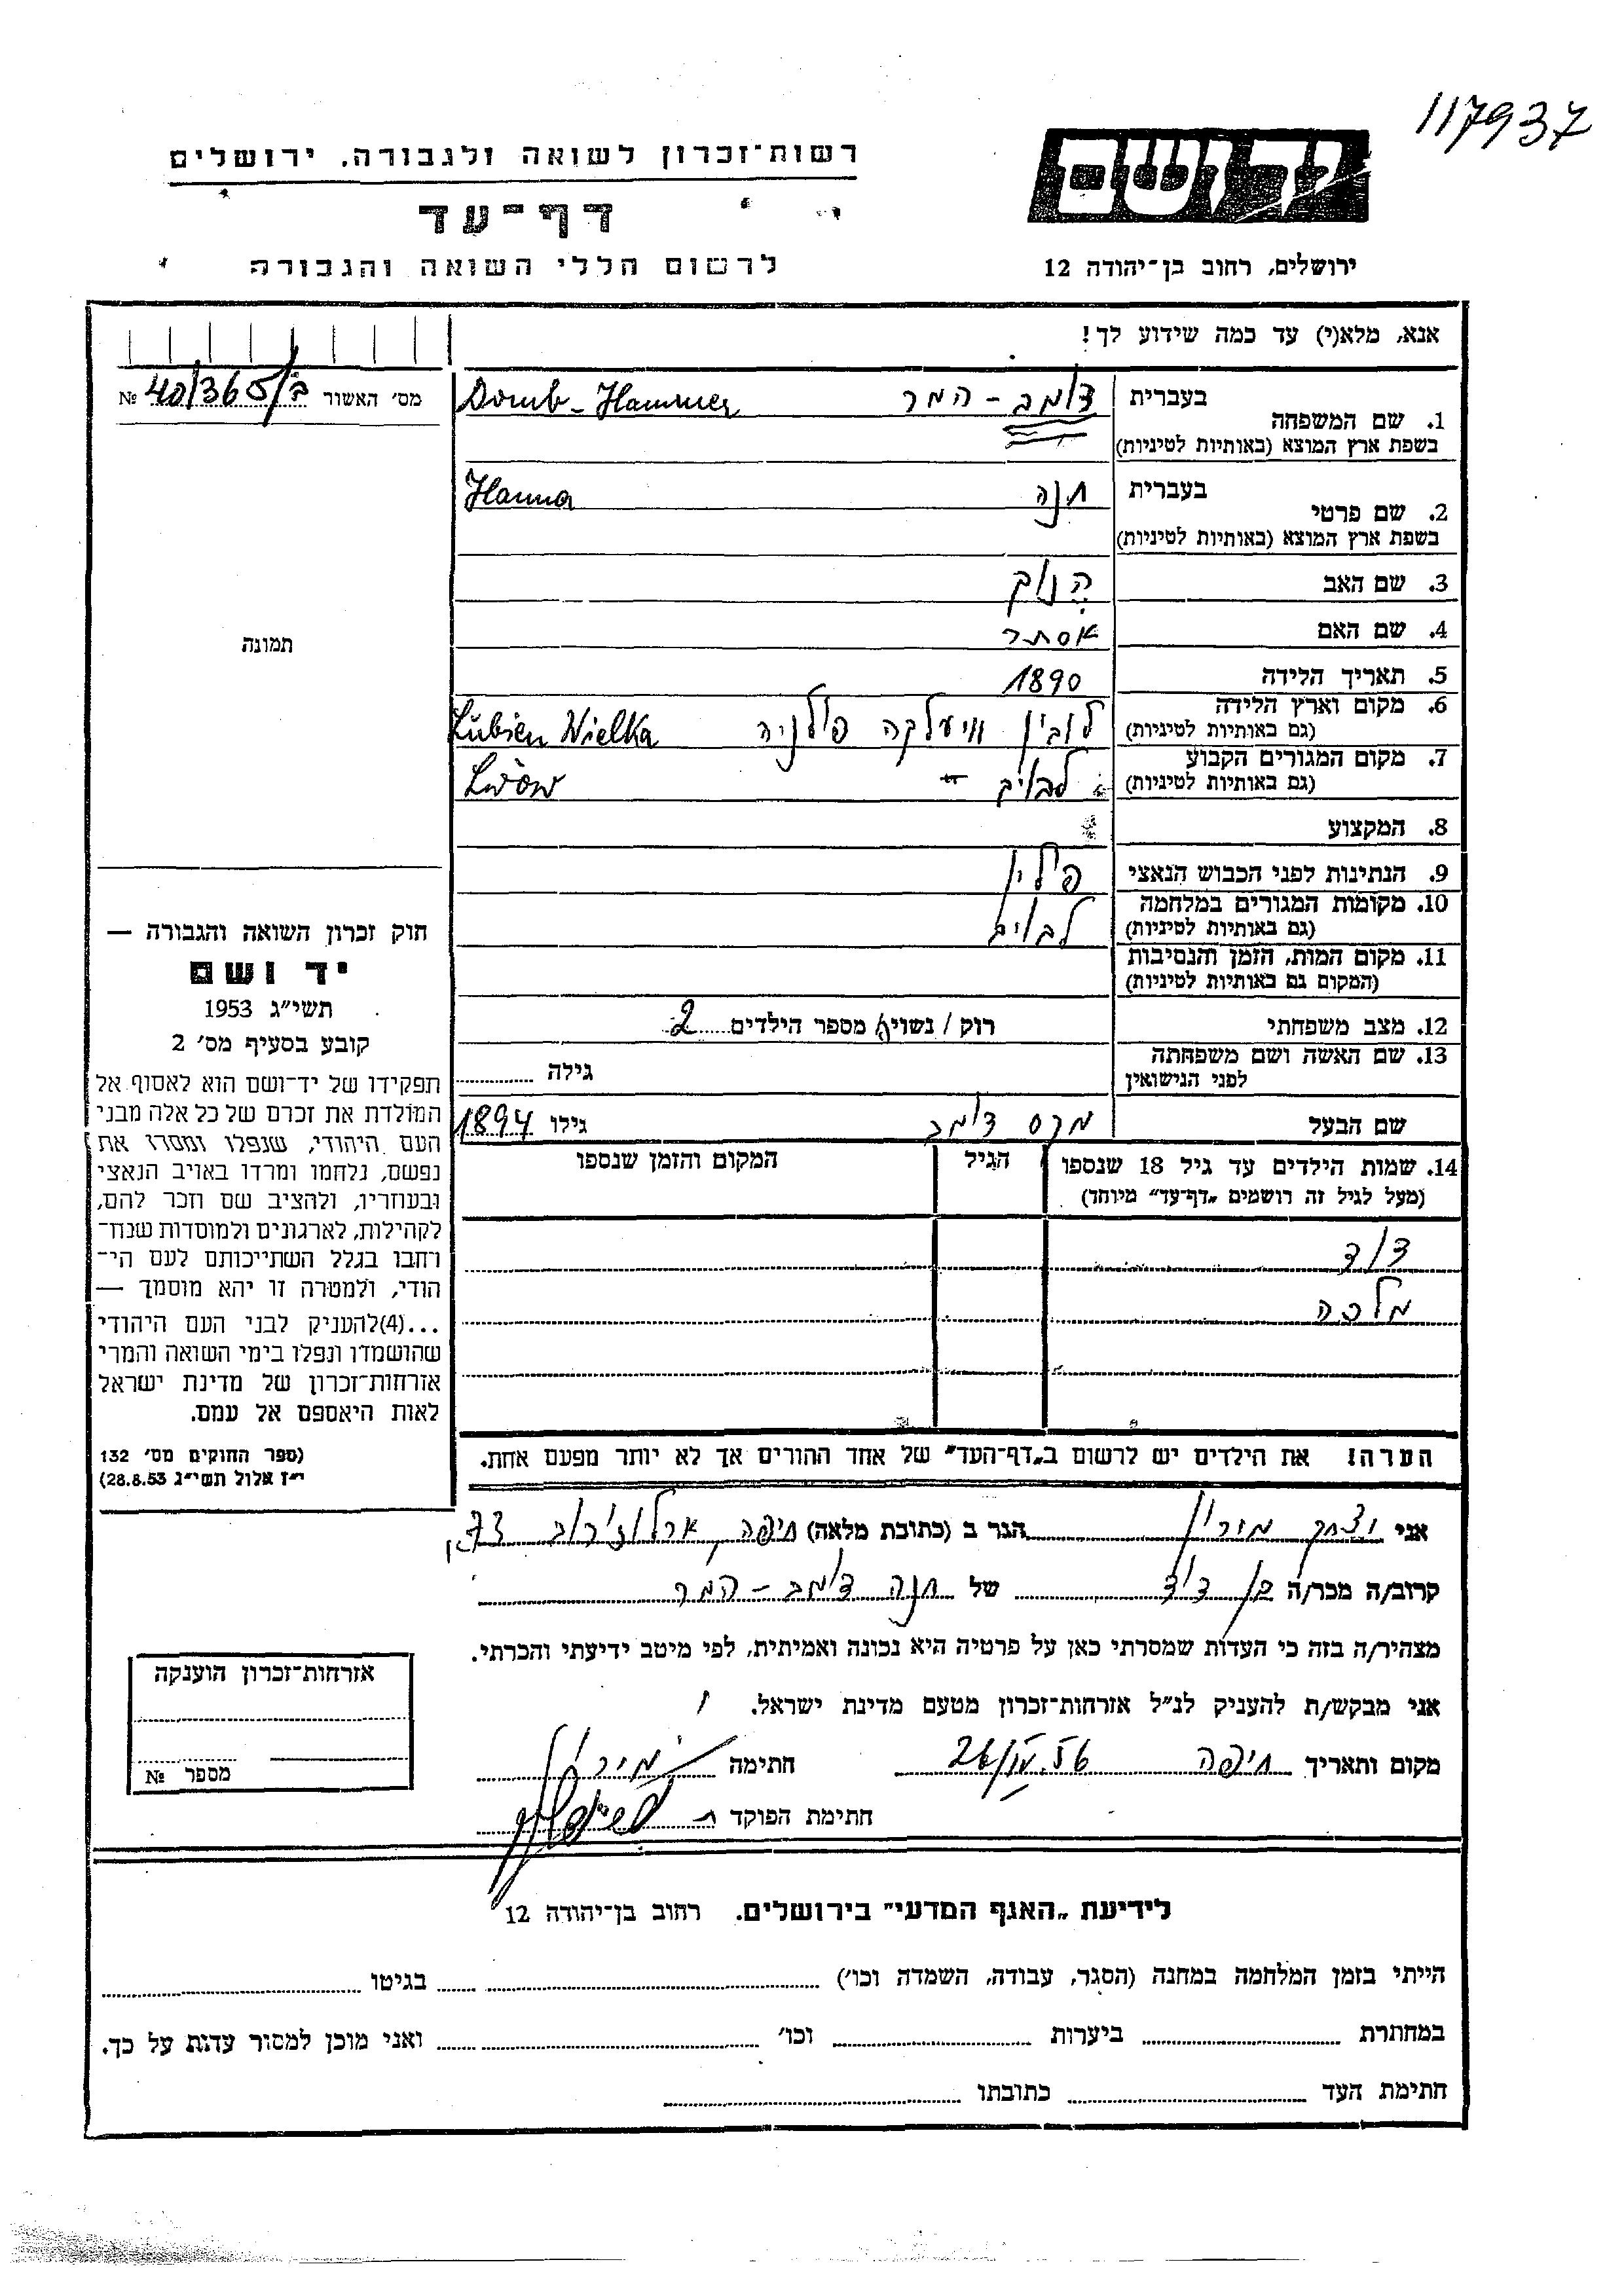 117937
רשות־זכרון לשואה ולגבורה. ירושלים
יד ושם
דף־עד
לרשום חללי השואה והגבורה
ירושלים, רחוב בן־יהודה 12
אנא, מלא(י) עד כמה שידוע לך!
מס׳ האשור № 40/365/ב
1. שם המשפחה
בעברית דומב - המר
בשפת ארץ המוצא (באותיות לטיניות) Domb - Hammer
2. שם פרטי
בעברית חנה
בשפת ארץ המוצא (באותיות לטיניות) Hanna
3. שם האב
4. שם האם אסתר
5. תאריך הלידה 1890
6. מקום וארץ הלידה לובין וויעלקה פולניה
(גם באותיות לטיניות) Lubien Wielka
7. מקום המגורים הקבוע לבוב - "
(גם באותיות לטיניות) Lwów
8. המקצוע
9. הנתינות לפני הכבוש הנאצי פולין
10. מקומות המגורים במלחמה לבוב
(גם באותיות לטיניות)
11. מקום המות, הזמן והנסיבות
(המקום גם באותיות לטיניות)
12. מצב משפחתי רוק / נשוי/ה מספר הילדים 2
13. שם האשה ושם משפחתה
לפני הנישואין גילה
שם הבעל מקס דומב גילו 1894
14. שמות הילדים עד גיל 18 שנספו הגיל המקום והזמן שנספו
(מעל לגיל זה רושמים „דף־עד” מיוחד)
דוד
מלכה
הערה! את הילדים יש לרשום ב„דף־העד” של אחד ההורים אך לא יותר מפעם אחת.
תמונה
חוק זכרון השואה והגבורה —
יד ושם
תשי״ג 1953
קובע בסעיף מס׳ 2
תפקידו של יד־ושם הוא לאסוף אל
המולדת את זכרם של כל אלה מבני
העם היהודי, שנפלו ומסרו את
נפשם, נלחמו ומרדו באויב הנאצי
ובעוזריו, ולהציב שם וזכר להם,
לקהילות, לארגונים ולמוסדות שנח־
רחבו בגלל השתייכותם לעם הי־
הודי, ולמטרה זו יהא מוסמך —
...(4)להעניק לבני העם היהודי
שהושמדו ונפלו בימי השואה והמרי
אזרחות־זכרון של מדינת ישראל
לאות היאספם אל עמם.
(ספר החוקים מס׳ 132
י״ז אלול תשי״ג 28.8.53)
אני יצחק מורין הגר ב (כתובת מלאה) חיפה, ארלוזורוב 73
קרוב/ה מכר/ה בן דוד של חנה דומב - המר
מצהיר/ה בזה כי העדות שמסרתי כאן על פרטיה היא נכונה ואמיתית, לפי מיטב ידיעתי והכרתי.
אני מבקש/ת להעניק לנ״ל אזרחות־זכרון מטעם מדינת ישראל.
מקום ותאריך חיפה חתימה
חתימת הפוקד
אזרחות־זכרון הוענקה
מספר №
לידיעת „האגף המדעי” בירושלים. רחוב בן־יהודה 12
הייתי בזמן המלחמה במחנה (הסגר, עבודה, השמדה וכו׳) בגיטו
במחתרת ביערות וכו׳ ואני מוכן למסור עדות על כך.
חתימת העד כתובתו